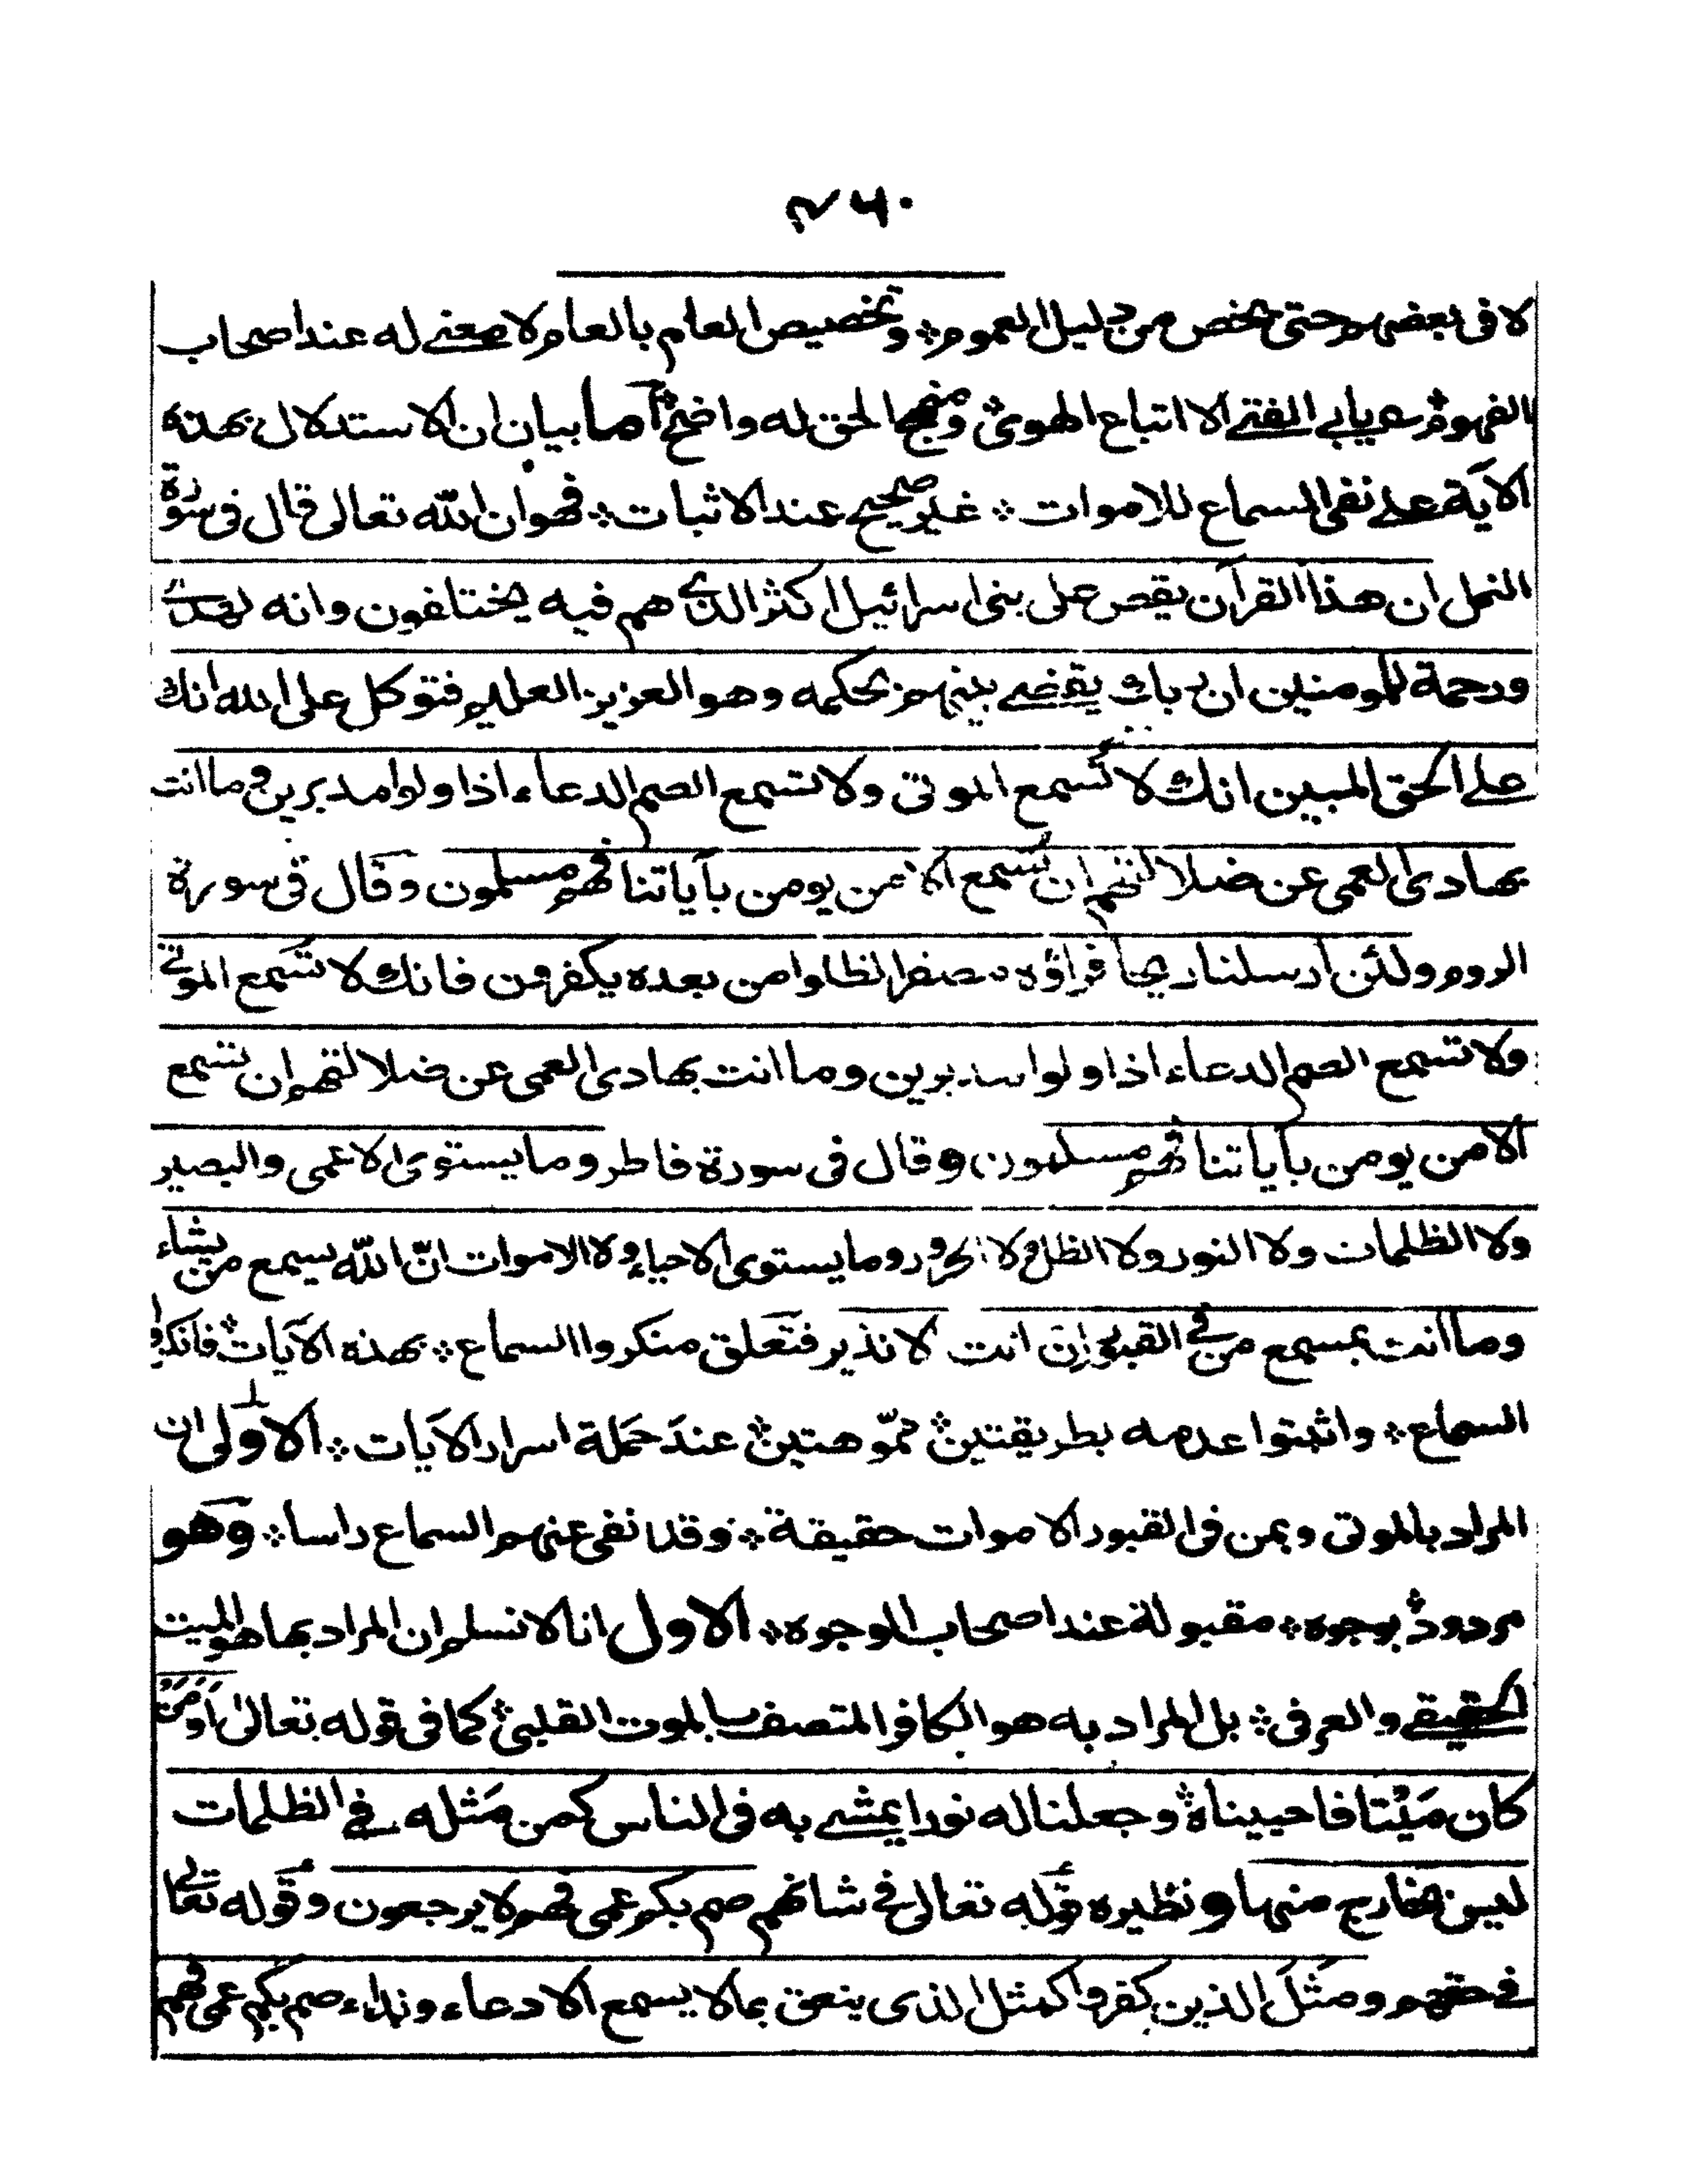 ۴۶۰
لا فى بعضهم حتى يخص من دليل العموم ؞ وتخصيص العام بالعام لا معنے له عند اصحاب
الفهوم ؞ يابى الفتے الا اتباع الهوى ؞ ومنهج الحق له واضح ؞ اما بيان ان الاستدلال بهذه
الآية علے نفى السماع للاموات ؞ غير صحيح عند الاثبات ؞ فهو ان الله تعالى قال فى سورة
النمل ان هذا القرآن يقص على بنى اسرائيل اكثر الذى هم فيه يختلفون وانه لهدى
ورحمة للمومنين ان ربك يقضے بينهم بحكمه وهو العزيز العليم فتوكل على الله انك
علے الحق المبين انك لا تسمع الموتى ولا تسمع الصم الدعاء اذا ولوا مدبرين وما انت
بهادى العمى عن ضلالتهم ان تسمع الا من يومن بآياتنا فهم مسلمون وقال فى سورة
الروم ولئن ارسلنا ريحا فراؤه مصفرا لظلوا من بعده يكفرون فانك لا تسمع الموتى
ولا تسمع الصم الدعاء اذا ولوا مدبرين وما انت بهادى العمى عن ضلالتهم ان تسمع
الا من يومن بآياتنا فهم مسلمون وقال فى سورة فاطر وما يستوى الاعمى والبصير
ولا الظلمات ولا النور ولا الظل ولا الحرور وما يستوى الاحياء ولا الاموات انّ الله يسمع من يشاء
وما انت بمسمع من فى القبور ان انت الا نذير فتعلق منكروا السماع ؞ بهذه الآيات ؞ فانكروا
السماع ؞ واثبتوا عدمه بطريقتين ؞ مموّهتين ؞ عند حملة اسرار الآيات ؞ الاولى ان
المراد بالموتى وبمن فى القبور الاموات حقيقة ؞ وقد نفى عنهم السماع راسا ؞ وهو
مردود بوجوه ؞ مقبولة عند اصحاب الوجوه ؞ الاول انا لا نسلم ان المراد بها هو الميت
الحقيقے والعرفى ؞ بل المراد به هو الكافر المتصف بالموت القلبى ؞ كما فى قوله تعالى اَوَمَنْ
كان مَيْتا فاحييناه ؞ وجعلنا له نورا يمشے به فى الناس كمن مَثله فے الظلمات
ليس بخارج منها ونظيره قوله تعالى فے شانهم صم بكم عمى فهم لا يرجعون وقوله تعالى
فے حقهم ومَثَلُ الذين كفروا كمثل الذى ينعق بما لا يسمع الا دعاء ونداء صم بكم عمى فهم